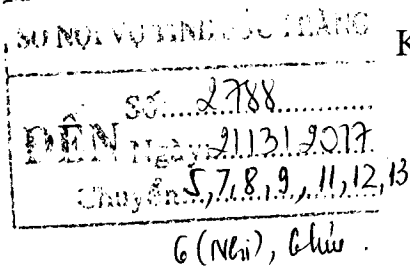 SỞ NỘI VỤ TỈNH SÓC TRĂNG
K
Số: 2788
ĐẾN Ngày: 21/3/2017
Chuyển: 5, 7, 8, 9, 11, 12, 13
6 (Nhi),